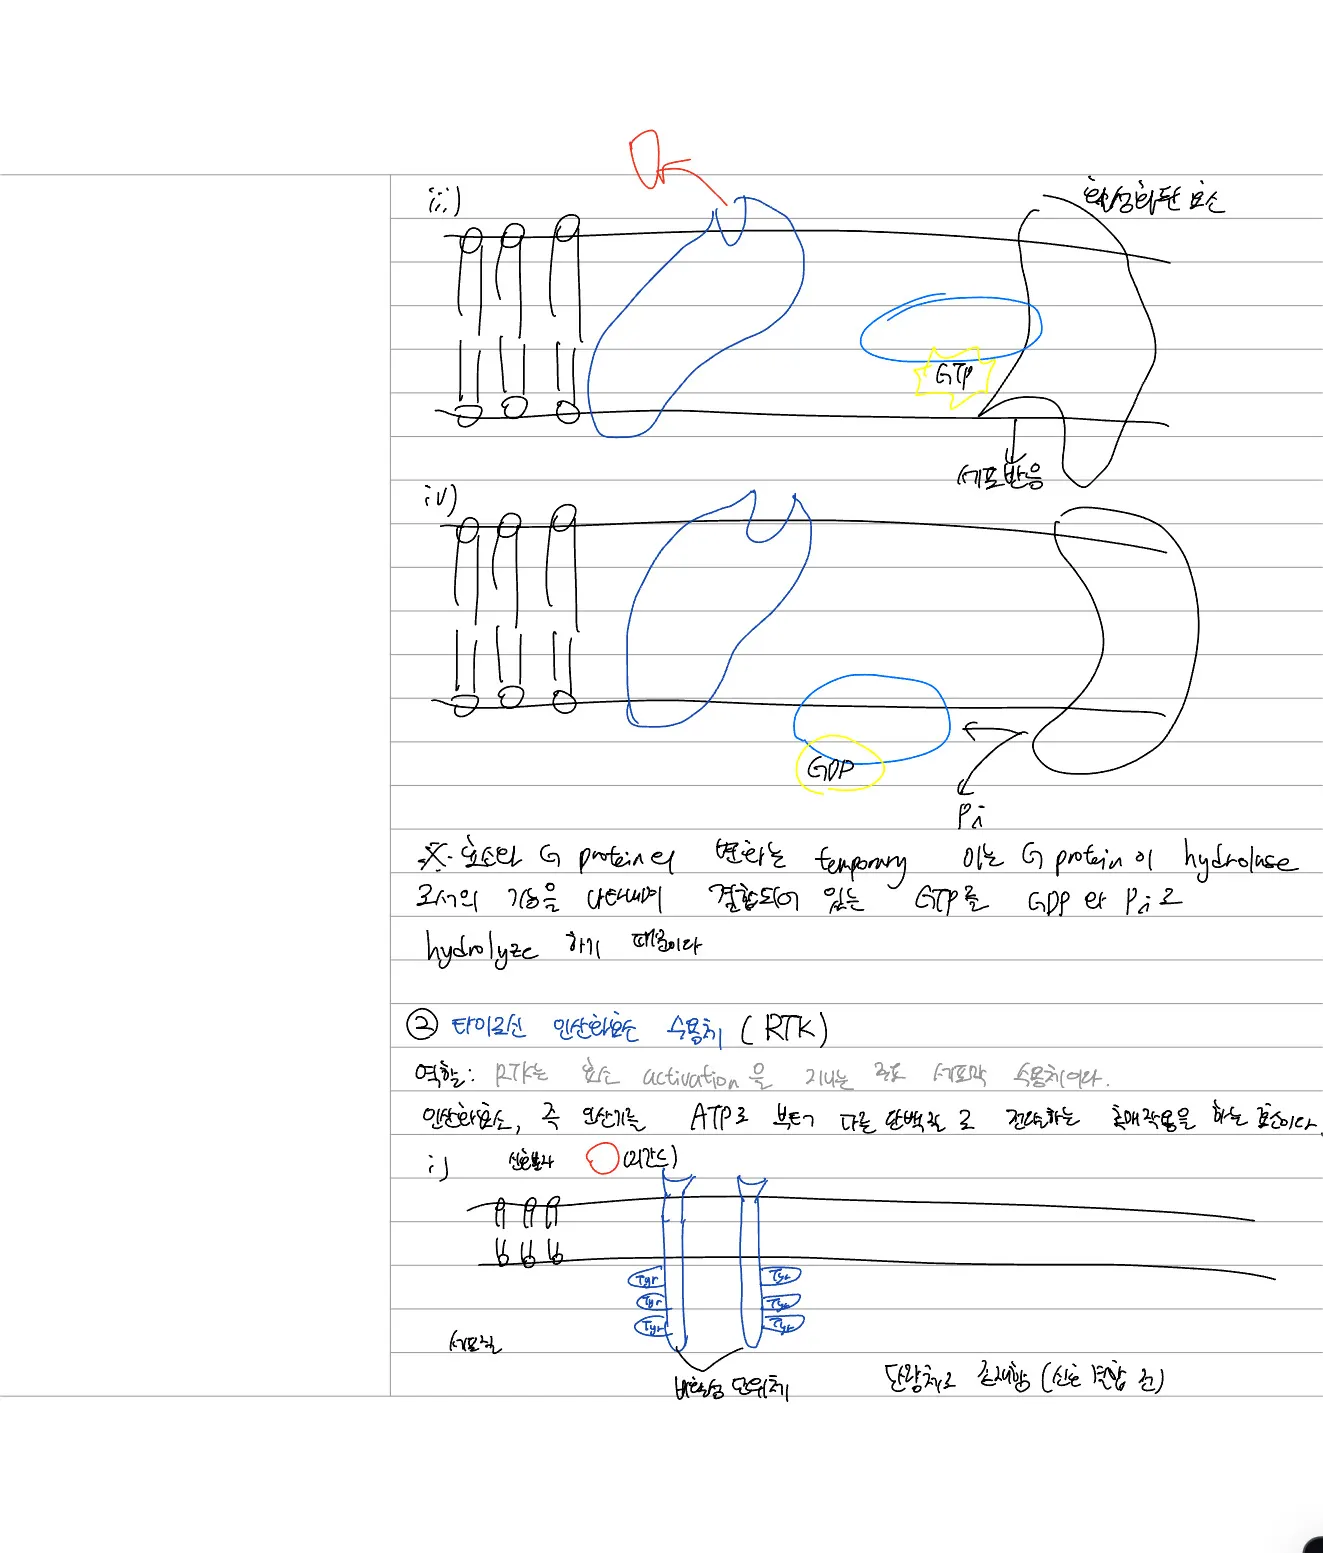 iii)
활성화된 효소
GTP
세포반응
iv)
GDP
Pi
※ 효소와 G protein의 변화는 temporary 이는 G protein이 hydrolase
로서의 기능을 나타내며 결합되어 있는 GTP를 GDP와 Pi로
hydrolyze 하기 때문이다
② 타이로신 인산화효소 수용체 (RTK)
역할: RTK는 효소 activation을 지니는 주요 세포막 수용체이다.
인산화효소, 즉 인산기를 ATP로 부터 다른 단백질로 전달하는 촉매작용을 하는 효소이다.
i) 신호분자 (리간드)
Tyr Tyr
Tyr Tyr
Tyr Tyr
세포질
비활성 단위체
단량체로 존재함 (신호 결합 전)